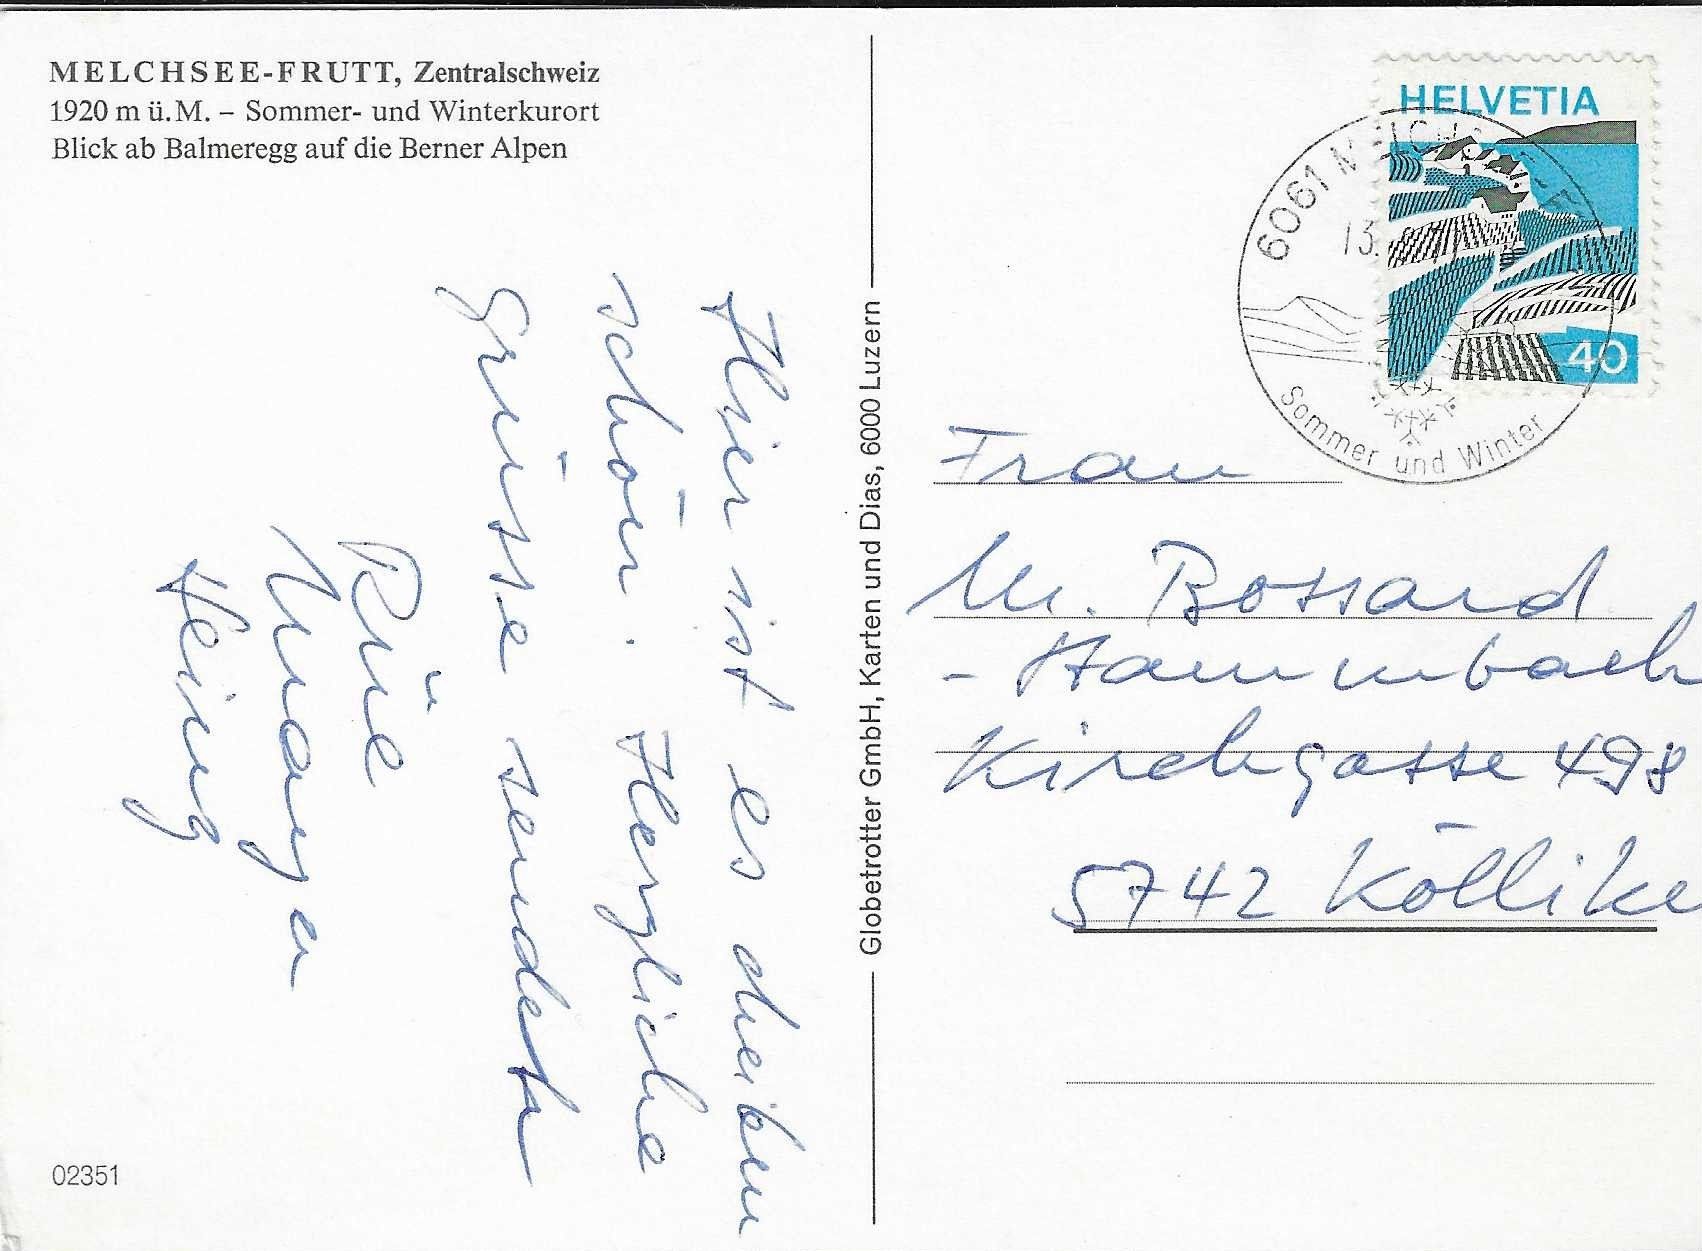 MELCHSEE-FRUTT, Zentralschweiz
1920 m ü.M. – Sommer- und Winterkurort
Blick ab Balmeregg auf die Berner Alpen
Hier ist es
schön. Herzliche
Grüsse sendet
Heinz
02351
Globetrotter GmbH, Karten und Dias, 6000 Luzern
HELVETIA
40
6061 MELCHSEE-F
13.
Sommer und Winter
Frau
M. Bossard
- Hammbach
Kirchgasse 498
5742 Köllike